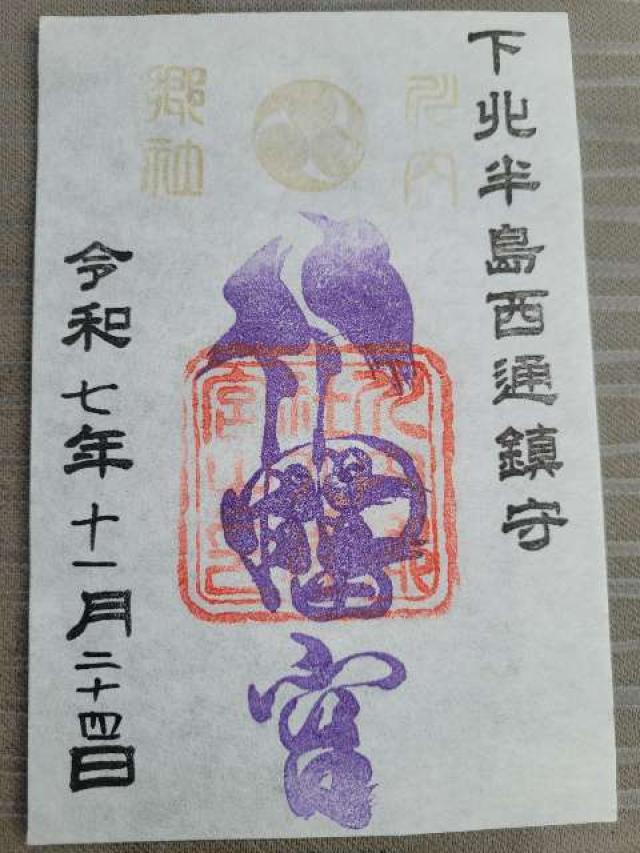 下北半島西通鎮守
川内
郷社
八幡宮
令和七年十一月二十四日